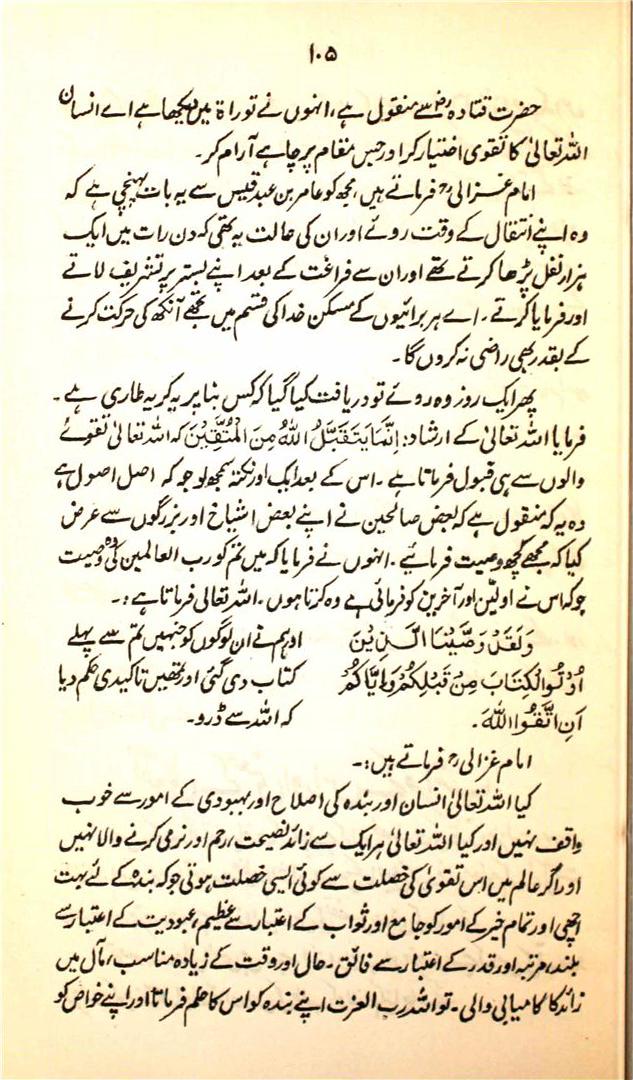 ۱۰۵
حضرت قتادہ رضؓ سے منقول ہے، انہوں نے توراۃ میں دیکھا ہے اے انسان
اللہ تعالیٰ کا تقوی اختیار کر اور جس مقام پر چاہے آرام کر۔
امام غزالی رح فرماتے ہیں، مجھ کو عامر بن عبد قیس سے یہ بات پہنچی ہے کہ
وہ اپنے انتقال کے وقت روئے اور ان کی حالت یہ تھی کہ دن رات میں ایک
ہزار نفل پڑھا کرتے تھے اور ان سے فراغت کے بعد اپنے بستر پر تشریف لاتے
اور فرمایا کرتے۔ اے ہر برائیوں کے مسکن خدا کی قسم میں تجھے آنکھ کی حرکت کرنے
کے بقدر بھی راضی نہ کروں گا۔
پھر ایک روز وہ روئے تو دریافت کیا گیا کہ کس بنا پر یہ گریہ طاری ہے۔
فرمایا اللہ تعالیٰ کے ارشاد: اِنَّمَا یَتَقَبَّلُ اللّٰہُ مِنَ الْمُتَّقِیْنَ کہ اللہ تعالیٰ تقوے
والوں سے ہی قبول فرماتا ہے۔ اس کے بعد ایک اور نکتہ سمجھ لو جو کہ اصل اصول ہے
وہ یہ کہ منقول ہے کہ بعض صالحین نے اپنے بعض اشیاخ اور بزرگوں سے عرض
کیا کہ مجھے کچھ وصیت فرمائیے۔ انہوں نے فرمایا کہ میں تم کو رب العالمین کی وہ وصیت
جو کہ اس نے اولین اور آخرین کو فرمائی ہے وہ کرتا ہوں۔ اللہ تعالی فرماتا ہے:۔
وَلَقَدْ وَصَّیْنَا الَّذِیْنَ
اُوْتُوا لْکِتَابَ مِنْ قَبْلِکُمْ وَاِیَّاکُمْ
اَنِ اتَّقُوا اللّٰہَ۔
اور ہم نے ان لوگوں کو جنہیں تم سے پہلے
کتاب دی گئی اور تمھیں تاکیدی حکم دیا
کہ اللہ سے ڈرو۔
امام غزالی رح فرماتے ہیں:۔
کیا اللہ تعالیٰ انسان اور بندہ کی اصلاح اور بہبودی کے امور سے خوب
واقف نہیں اور کیا اللہ تعالیٰ ہر ایک سے زائد نصیحت، رحم اور نرمی کرنے والا نہیں
اور اگر عالم میں اس تقویٰ کی خصلت سے کوئی ایسی خصلت ہوتی جو کہ بندہ کے لئے بہت
اچھی اور تمام خیر کے امور کو جامع اور ثواب کے اعتبار سے عظیم، عبودیت کے اعتبار سے
بلند، مرتبہ اور قدر کے اعتبار سے فائق۔ حال اور وقت کے زیادہ مناسب، مآل میں
زائد کا کامیابی والی۔ تو اللہ رب العزت اپنے بندہ کو اس کا حکم فرماتا اور اپنے خواص کو